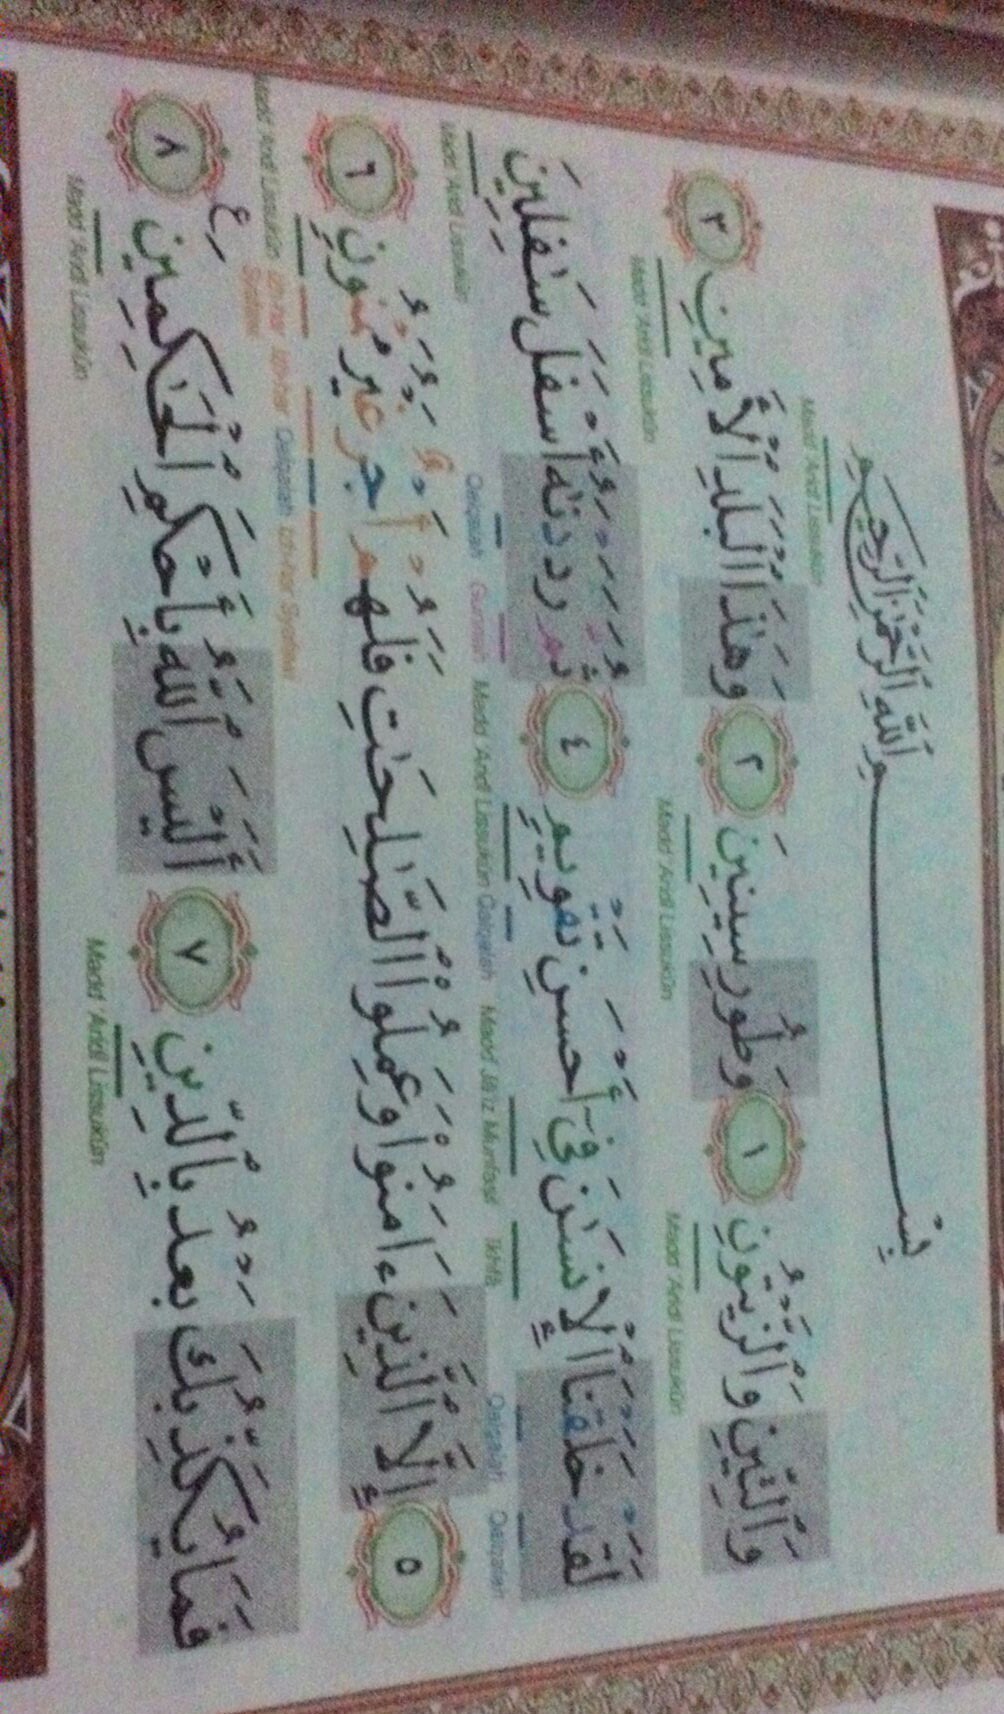 بِسْمِ ٱللَّهِ ٱلرَّحْمَٰنِ ٱلرَّحِيمِ
Madd 'Aridl Lissukûn
وَٱلتِّينِ وَٱلزَّيْتُونِ ١ وَطُورِ سِينِينَ ٢ وَهَٰذَا ٱلْبَلَدِ ٱلْأَمِينِ ٣
Madd 'Aridl Lissukûn Madd 'Aridl Lissukûn Madd 'Aridl Lissukûn
لَقَدْ خَلَقْنَا ٱلْإِنسَٰنَ فِىٓ أَحْسَنِ تَقْوِيمٍ ٤ ثُمَّ رَدَدْنَٰهُ أَسْفَلَ سَٰفِلِينَ
Qalqalah Qalqalah Ikhfâ Madd Jâ'iz Munfasil Qalqalah Madd 'Aridl Lissukûn Gunnah Qalqalah Madd 'Aridl Lissukûn
٥ إِلَّا ٱلَّذِينَ ءَامَنُوا۟ وَعَمِلُوا۟ ٱلصَّٰلِحَٰتِ فَلَهُمْ أَجْرٌ غَيْرُ مَمْنُونٍ ٦
Izhhar Syafawi Qalqalah Izhhar Izhhar Syafawi Madd 'Aridl Lissukûn
فَمَا يُكَذِّبُكَ بَعْدُ بِٱلدِّينِ ٧ أَلَيْسَ ٱللَّهُ بِأَحْكَمِ ٱلْحَٰكِمِينَ ع ٨
Madd 'Aridl Lissukûn Madd 'Aridl Lissukûn